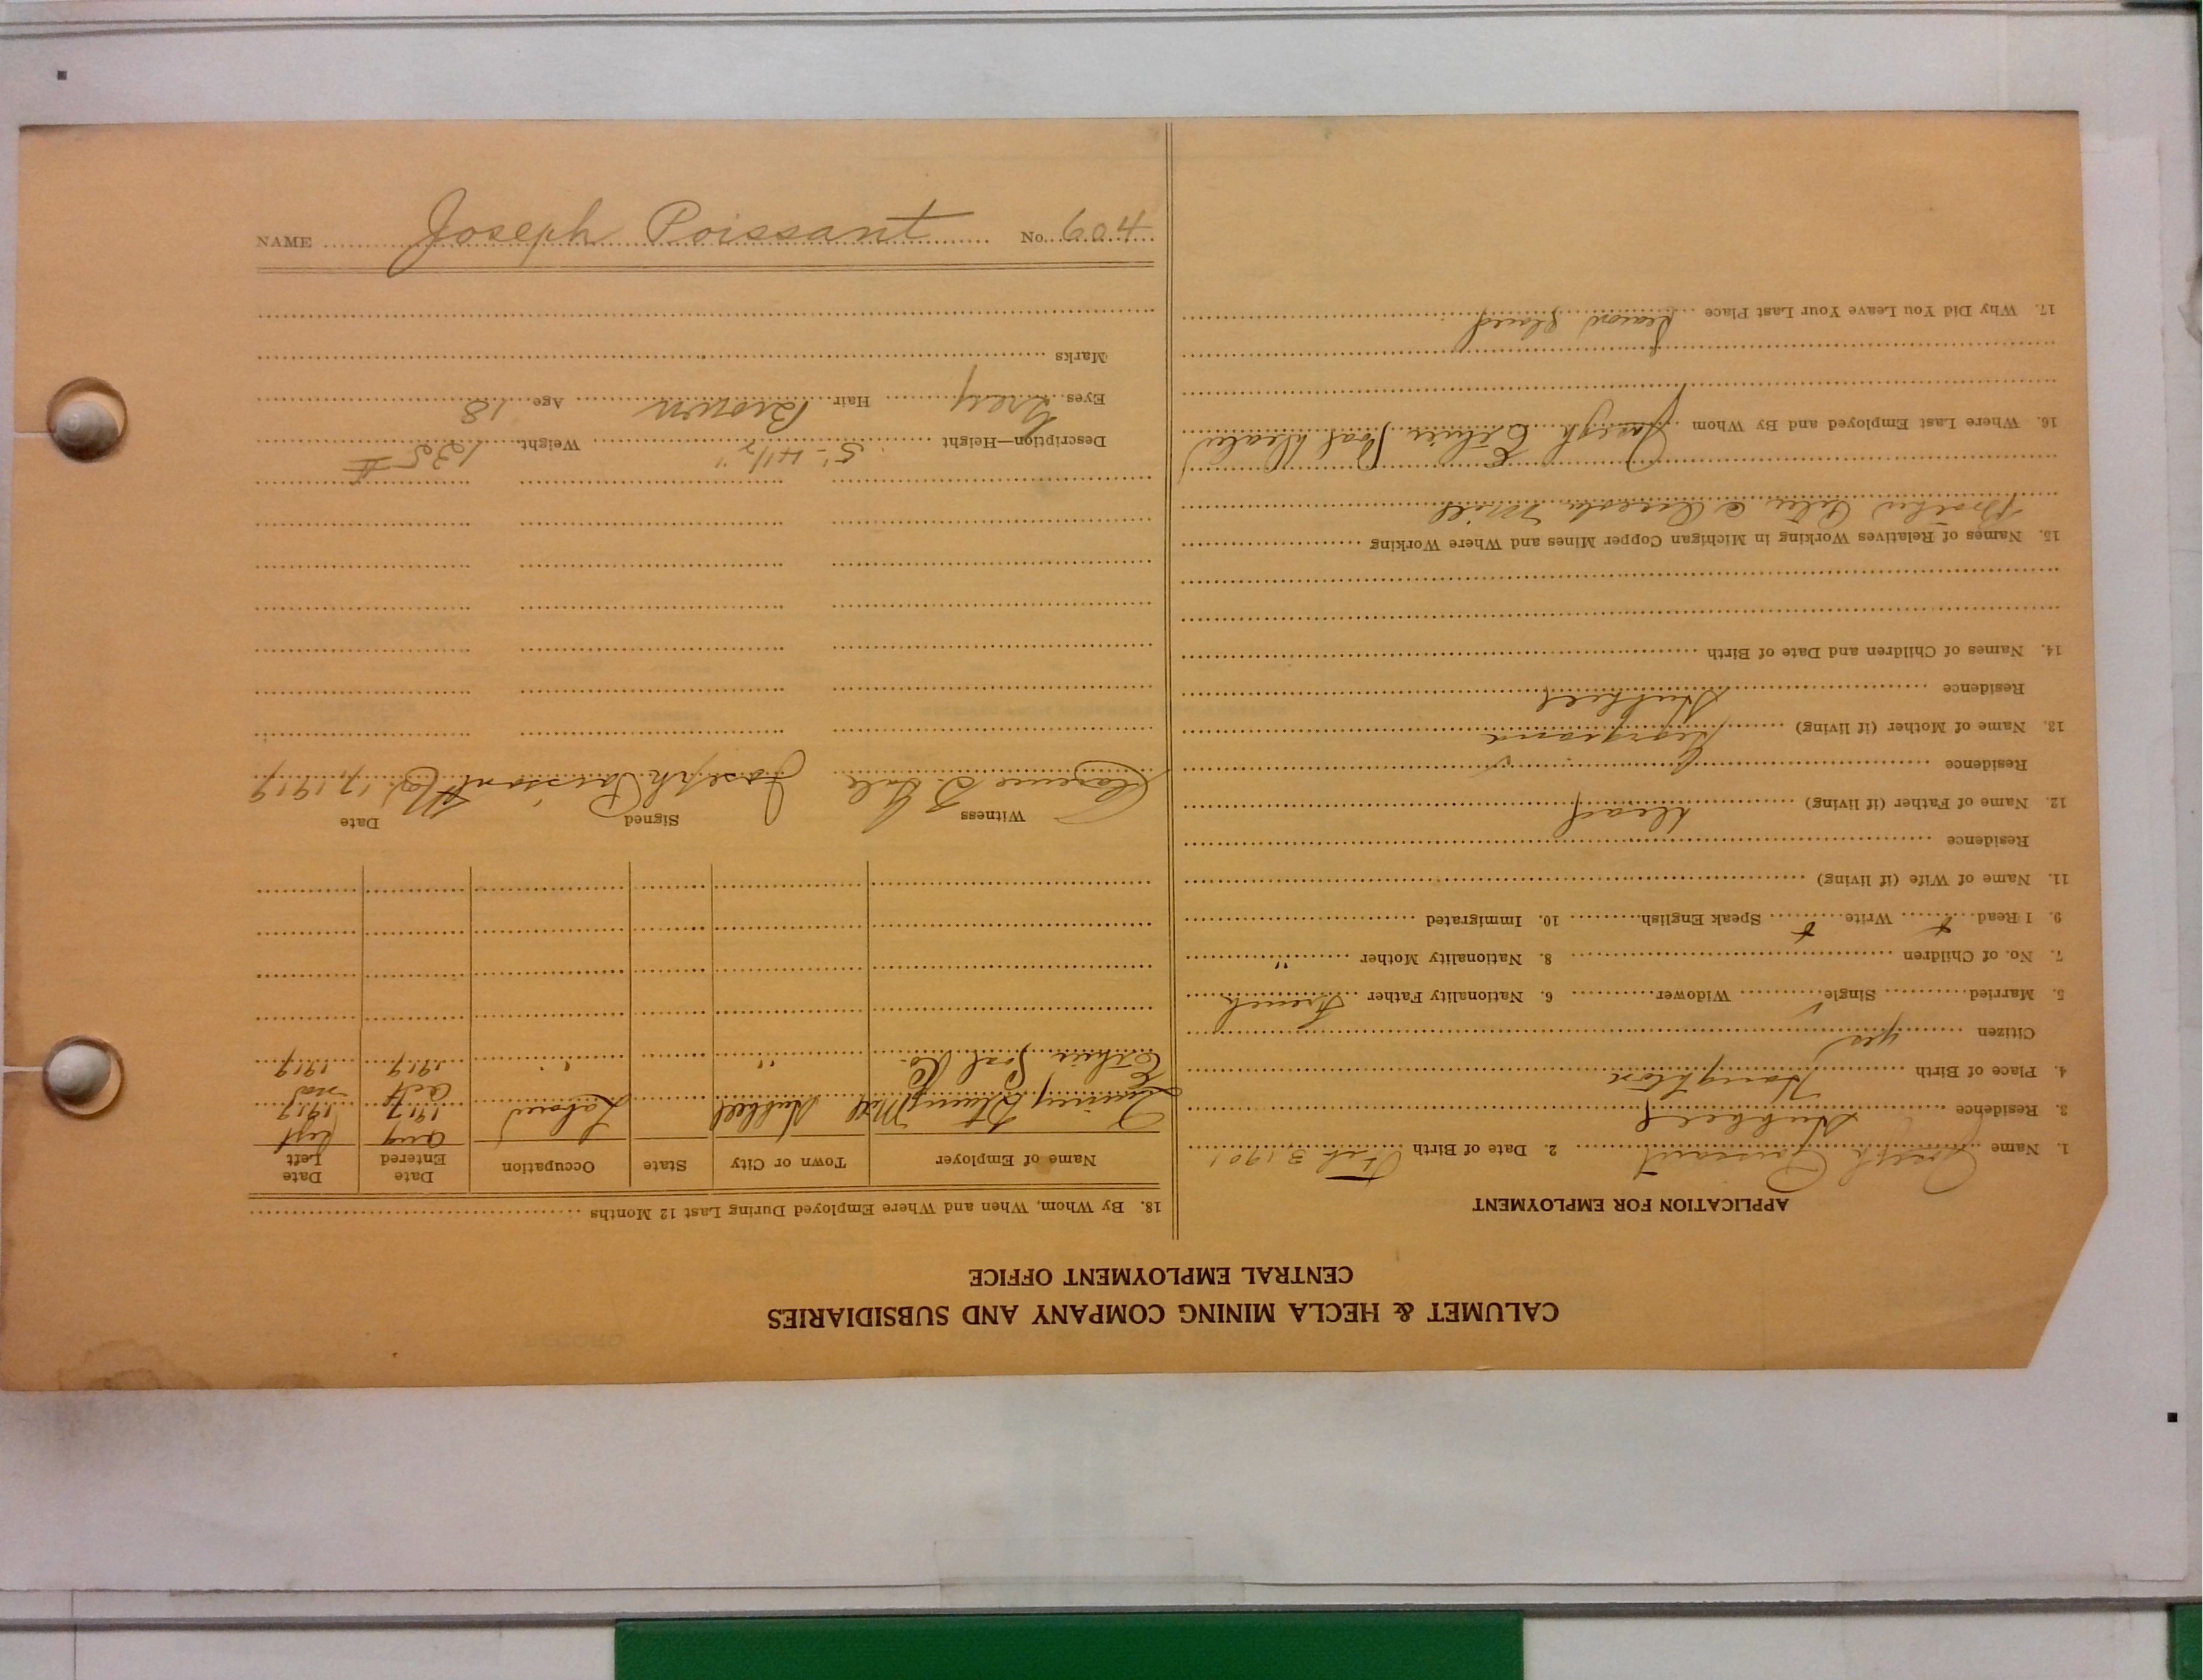 CALUMET & HECLA MINING COMPANY AND SUBSIDIARIES
CENTRAL EMPLOYMENT OFFICE
APPLICATION FOR EMPLOYMENT
1. Name Joseph Poissant 2. Date of Birth Feb. 3, 1901
3. Residence Hubbell
4. Place of Birth Houghton
Citizen yes
5. Married Single ✓ Widower 6. Nationality Father French
7. No. of Children 8. Nationality Mother "
9. I Read Write Speak English 10. Immigrated
11. Name of Wife (if living)
Residence
12. Name of Father (if living) Dead
Residence
13. Name of Mother (if living) Georgiana
Residence Hubbell
14. Names of Children and Date of Birth
15. Names of Relatives Working in Michigan Copper Mines and Where Working
Brother Peter @ Osceola Mill
16. Where Last Employed and By Whom Joseph Coal Dealer
17. Why Did You Leave Your Last Place
18. By Whom, When and Where Employed During Last 12 Months
Name of Employer Town or City State Occupation Date Entered Date Left
Quincy Stamp Mill Hubbell Labour Aug 1917 Sept 1917
Coal Co. " " Oct 1917 1917
Witness Signed Date
Clarence Joseph Poissant 17, 1919
Description—Height 5'-4 1/2" Weight 135 #
Eyes Grey Hair Brown Age 18
Marks
NAME Joseph Poissant No. 604